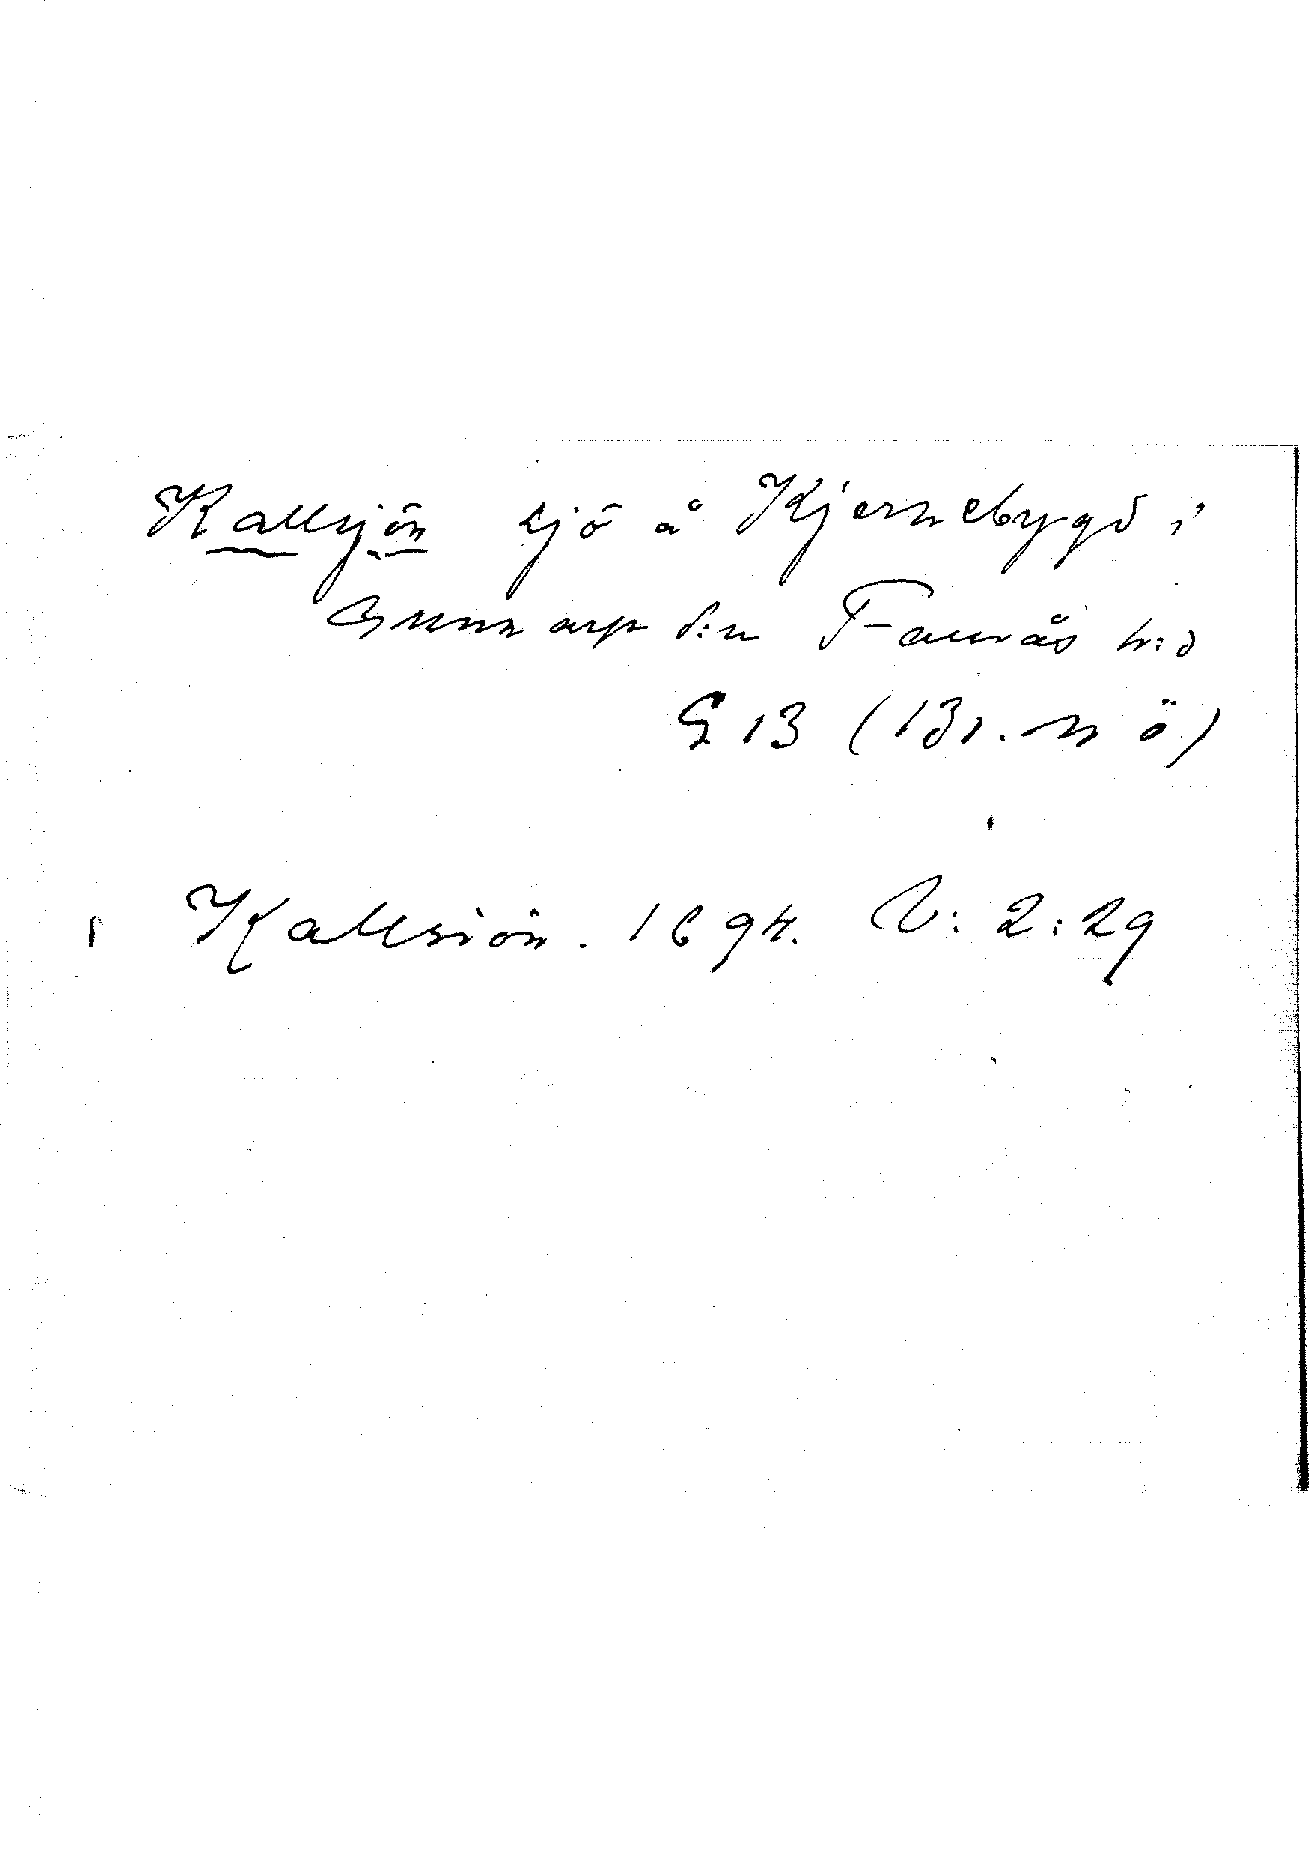 Kallsjön sjö å Kjernebygd i
Gunnarp s:n Faurås h:d
G 13 (131. n ö)
Kallsiön. 1694. V: 2:29